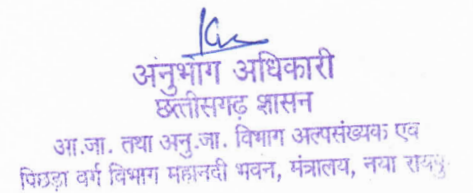 अनुभाग अधिकारी
छत्तीसगढ़ शासन
आ.जा. तथा अनु.जा. विभाग अल्पसंख्यक एवं
पिछड़ा वर्ग विभाग महानदी भवन, मंत्रालय, नया रायपु